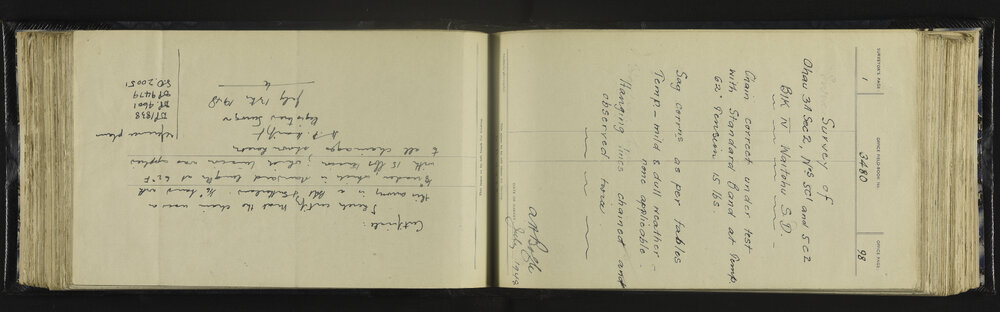 SURVEYOR'S PAGE
1
OFFICE FIELD-BOOK No.
3480
OFFICE PAGE
98
Survey of
Ohau 3A Sec 2, Nos 5C1 and 5C2
Blk IV Waitohu S.D.
Chain correct under test
with Standard Band at Temp.
62° Tension 15 lbs.
Sag corrns as per tables
Temp - mild & dull weather -
none applicable.
Hanging lines chained and
observed twice
July, 1948
Certificate
I hereby certify that the chain used on
this survey is a
under which is standard length at 62°F
with 15 lbs tension; which tension was applied
to all chainages shown herein
Surveyor
July 13th 1948
Reference plans
DP 1838
DP 4601
DP 9479
S.O. 20051